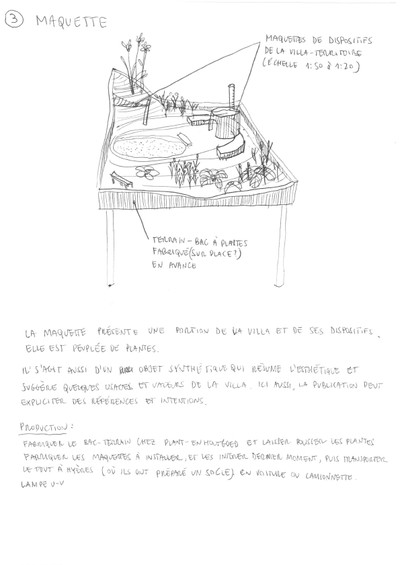 3 MAQUETTE
MAQUETTES DE DISPOSITIFS
DE LA VILLA-TERRITOIRE
(ÉCHELLE 1:50 à 1:20)
TERRAIN-BAC À PLANTES
FABRIQUÉ (SUR PLACE?)
EN AVANCE
LA MAQUETTE PRÉSENTE UNE PORTION DE LA VILLA ET DE SES DISPOSITIFS.
ELLE EST PEUPLÉE DE PLANTES.
IL S'AGIT AUSSI D'UN OBJET SYNTHÉTIQUE QUI RÉSUME L'ESTHÉTIQUE ET
SUGGÈRE QUELQUES USAGES ET VALEURS DE LA VILLA. ICI AUSSI, LA PUBLICATION PEUT
EXPLICITER DES RÉFÉRENCES ET INTENTIONS.
PRODUCTION:
FABRIQUER LE BAC-TERRAIN CHEZ ET LAISSER POUSSER LES PLANTES
FABRIQUER LES MAQUETTES À INSTALLER, ET LES DERNIER MOMENT, PUIS TRANSPORTER
LE TOUT À HYÈRES (OÙ ILS ONT PRÉPARÉ UN SOCLE) EN VOITURE OU CAMIONNETTE.
LAMPE U-V